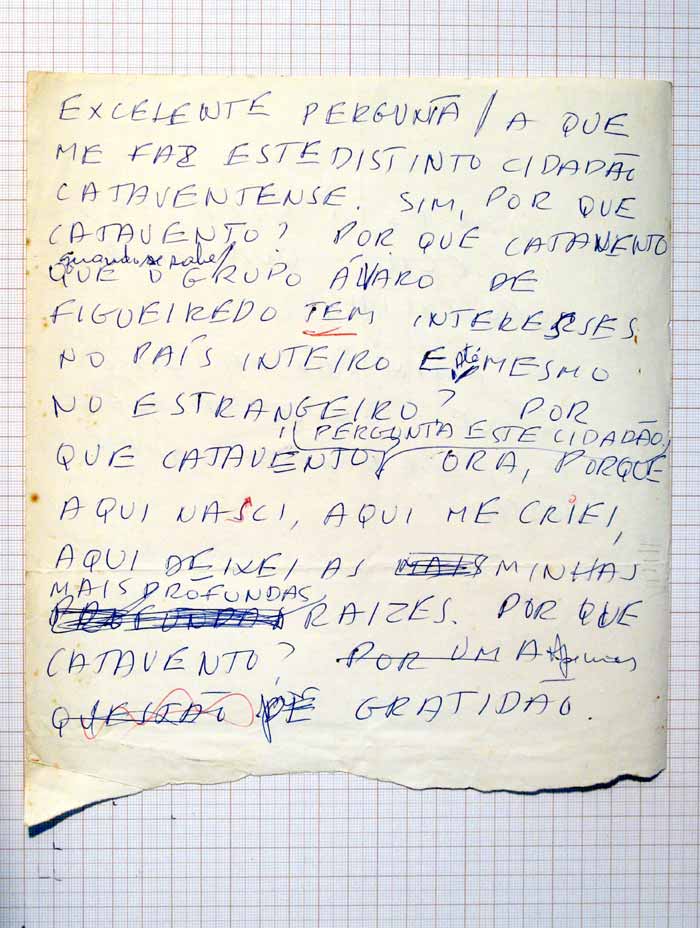 EXCELENTE PERGUNTA A QUE
ME FAZ ESTE DISTINTO CIDADÃO
CATAVENTENSE. SIM, POR QUE
CATAVENTO? POR QUE CATAVENTO
quando se sabe
QUE O GRUPO ÁLVARO DE
FIGUEIREDO TEM INTERESSES
NO PAÍS INTEIRO E até MESMO
NO ESTRANGEIRO? POR
PERGUNTA ESTE CIDADÃO.
QUE CATAVENTO, ORA, PORQUE
AQUI NASCI, AQUI ME CRIEI,
AQUI DEIXEI AS MAIS MINHAS
MAIS PROFUNDAS
PROFUNDAS RAIZES. POR QUE
CATAVENTO? POR UMA Apenas
QUESTÃO DE GRATIDÃO.